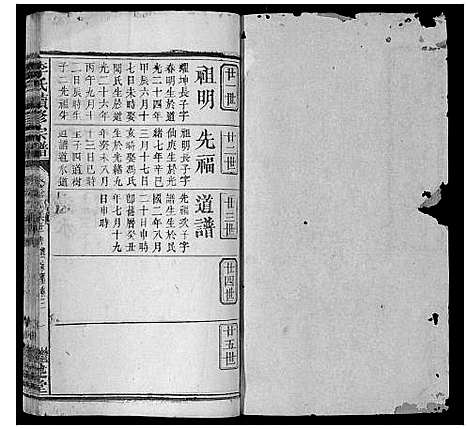 廿一世
祖明
耀坤長子字
春明生於道
光二十四年
甲辰六月十
七日未時娶
閔氏生於道
光二十六年
丙午九月十
二日辰時生
子二先福先
廿二世
先福
祖明長子字
仙庚生於光
緒七年辛巳
三月十七日
亥時娶馮氏
生於光緒九
年癸未八月
十三日巳時
生子四道樹
道譜道水道
廿三世
道譜
先福次子字
譜生生於民
國二年八月
二十日申時
即舊曆癸丑
年七月十九
日申時
廿四世
廿五世
氏續修宗譜